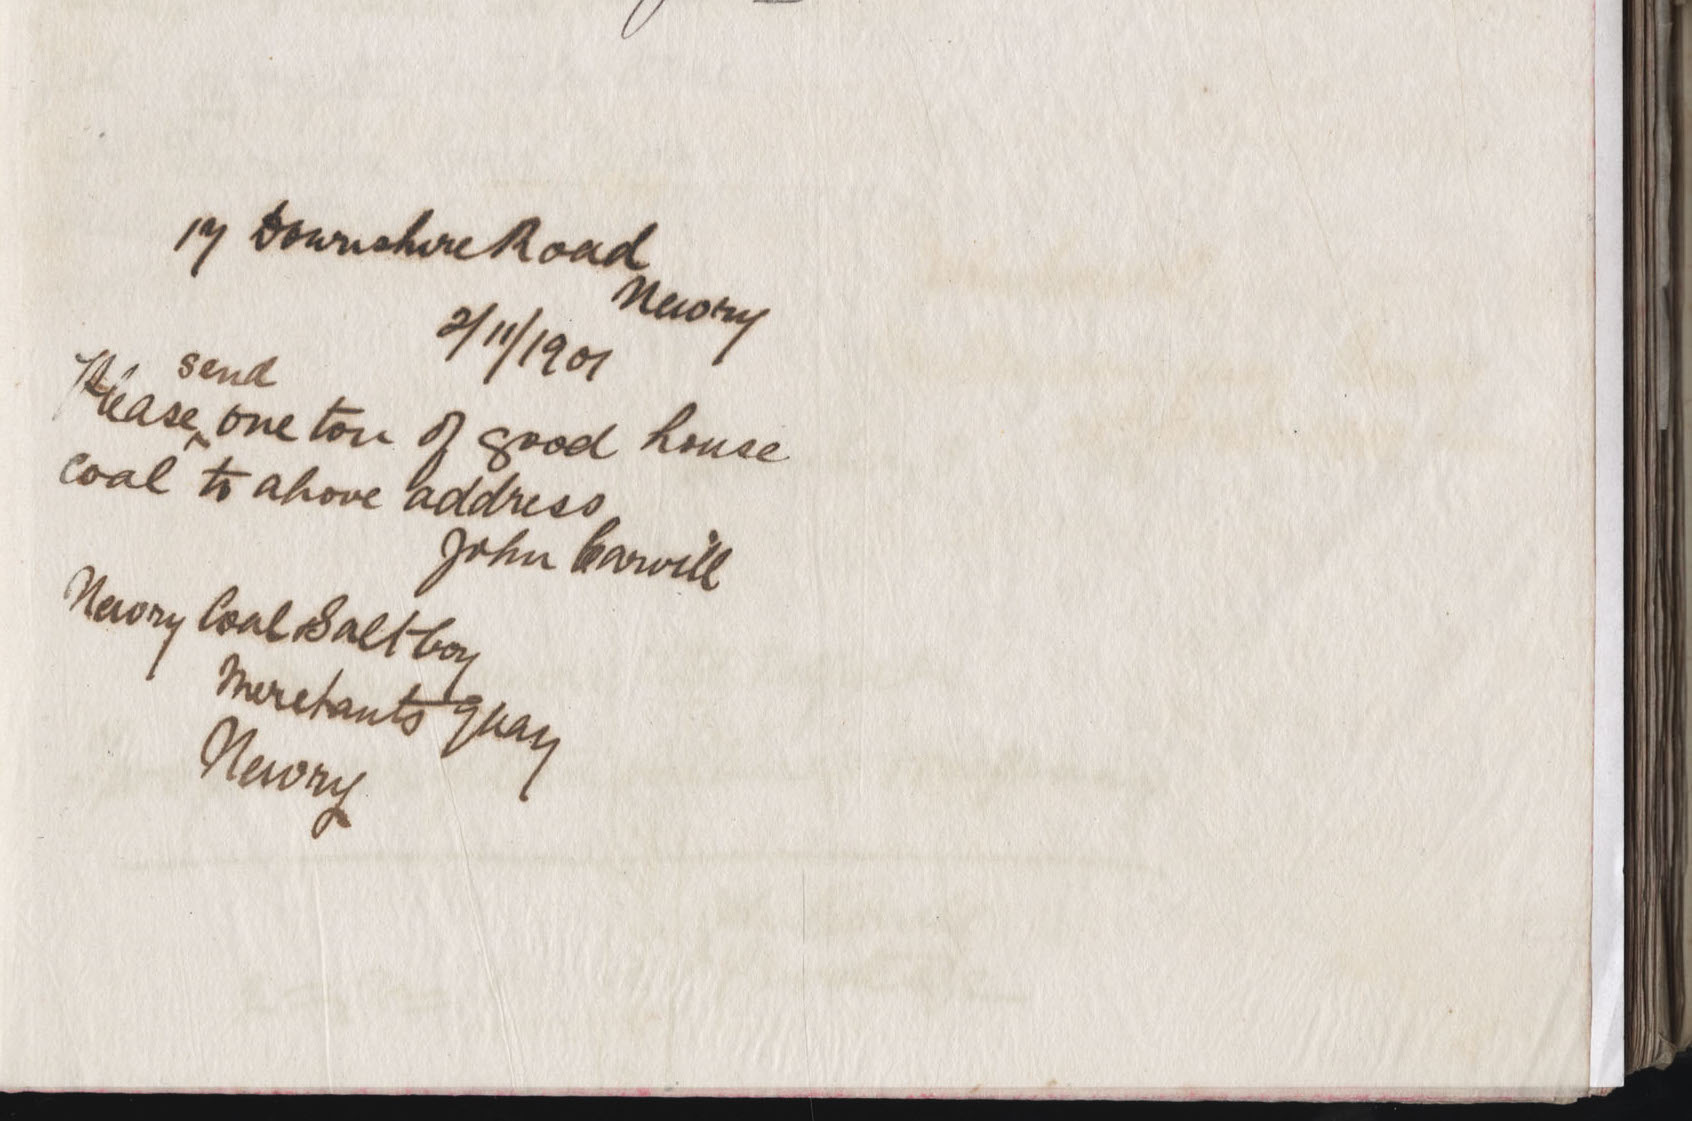 17 Downshire Road
Newry
2/11/1901
Please send one ton of good house
coal to above address
John Carvill
Newry Coal Salt Coy
Merchants Quay
Newry